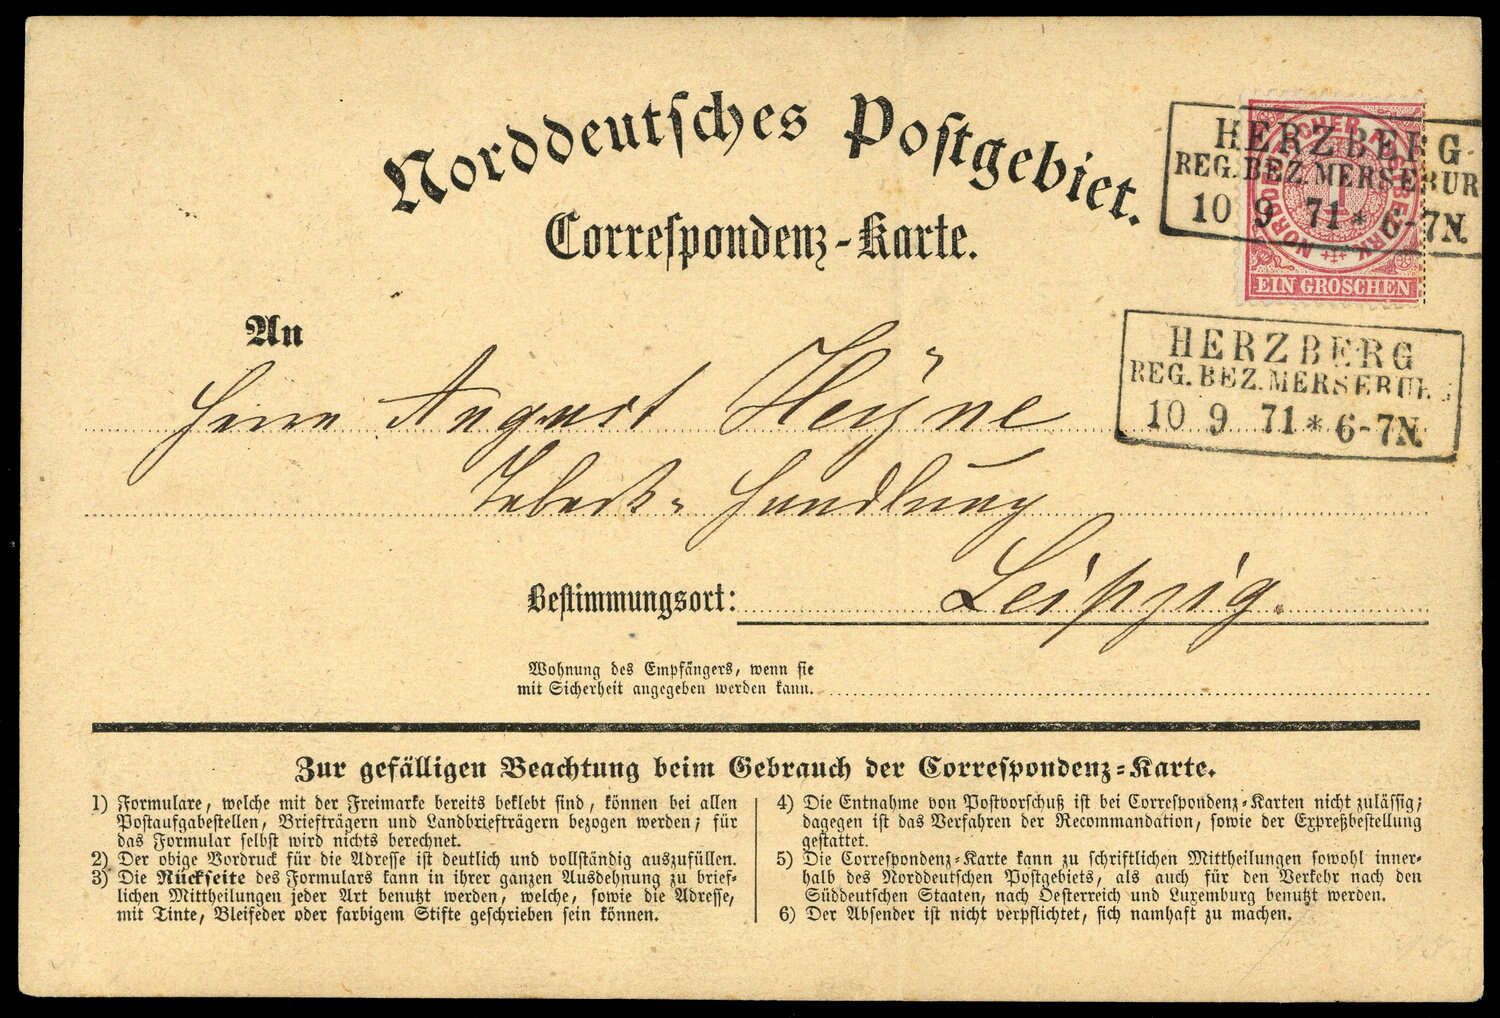 Norddeutsches Postgebiet.
Correspondenz-Karte.
NORDDEUTSCHER POSTBEZIRK
1
EIN GROSCHEN
HERZBERG
REG. BEZ. MERSEBUR
10 9 71 * 6-7N.
HERZBERG
REG. BEZ. MERSEBURG
10 9 71 * 6-7N.
An
Herrn August Heyne
Handlung
Bestimmungsort: Leipzig.
Wohnung des Empfängers, wenn sie
mit Sicherheit angegeben werden kann.
Zur gefälligen Beachtung beim Gebrauch der Correspondenz-Karte.
1) Formulare, welche mit der Freimarke bereits beklebt sind, können bei allen
Postaufgabestellen, Briefträgern und Landbriefträgern bezogen werden; für
das Formular selbst wird nichts berechnet.
2) Der obige Vordruck für die Adresse ist deutlich und vollständig auszufüllen.
3) Die Rückseite des Formulars kann in ihrer ganzen Ausdehnung zu brief-
lichen Mittheilungen jeder Art benutzt werden, welche, sowie die Adresse,
mit Tinte, Bleifeder oder farbigem Stifte geschrieben sein können.
4) Die Entnahme von Postvorschuß ist bei Correspondenz-Karten nicht zulässig;
dagegen ist das Verfahren der Recommandation, sowie der Expreßbestellung
gestattet.
5) Die Correspondenz-Karte kann zu schriftlichen Mittheilungen sowohl inner-
halb des Norddeutschen Postgebiets, als auch für den Verkehr nach den
Süddeutschen Staaten, nach Oesterreich und Luxemburg benutzt werden.
6) Der Absender ist nicht verpflichtet, sich namhaft zu machen.